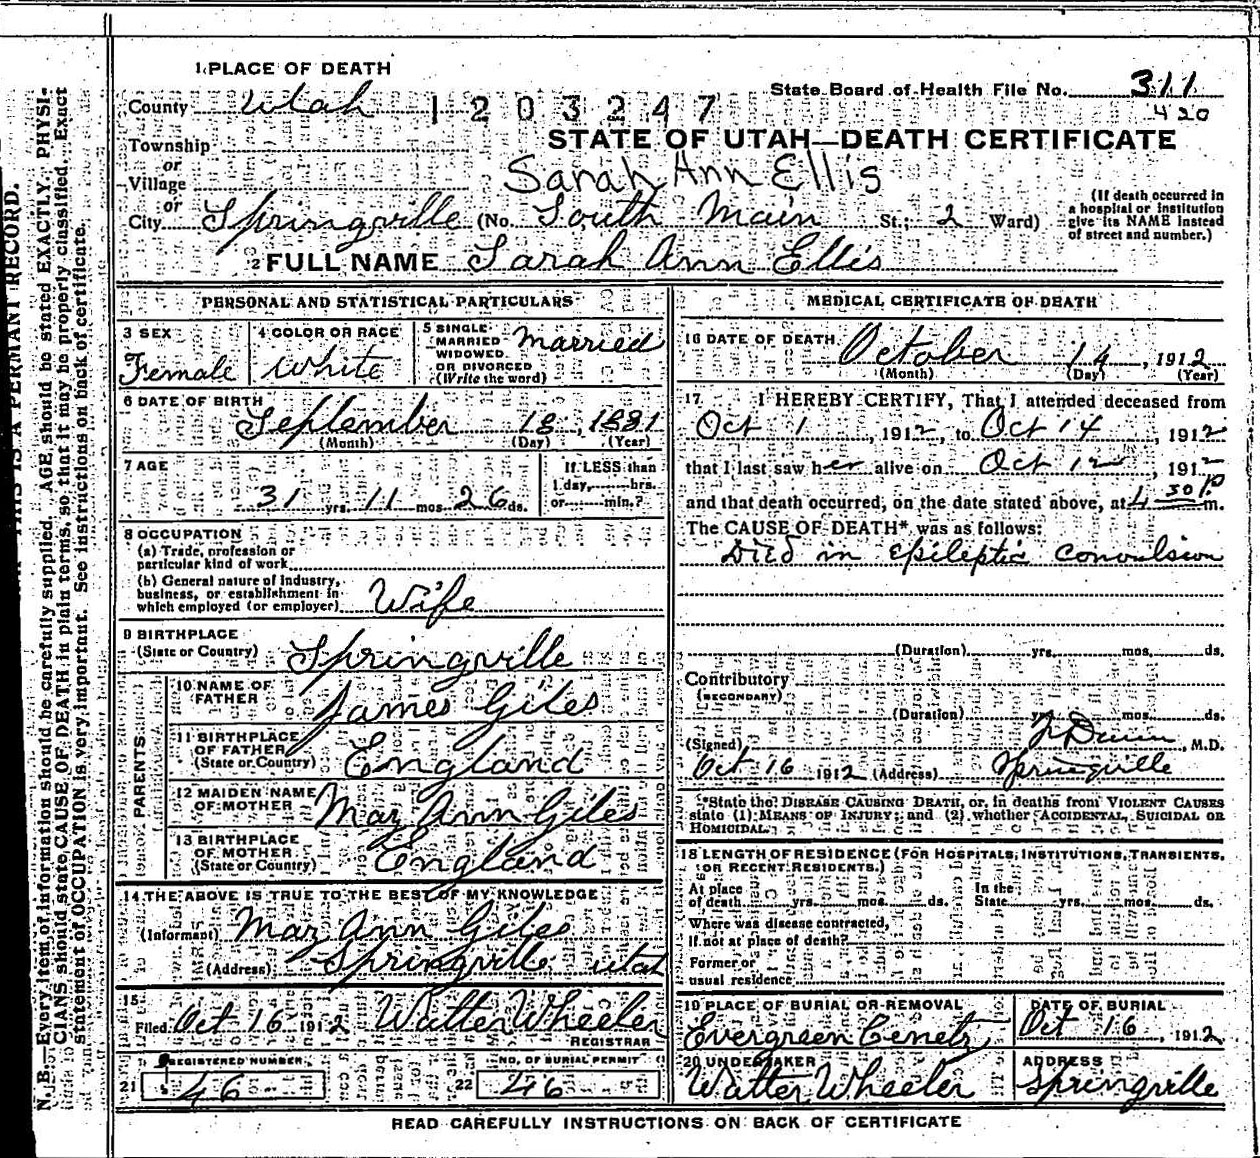 1 PLACE OF DEATH
County Utah 1203247
State Board of Health File No. 311
420
Township
STATE OF UTAH—DEATH CERTIFICATE
or
Village
Sarah Ann Ellis
or
City Springville (No. South Main St.; 2 Ward)
(If death occurred in
a hospital or institution
give its NAME instead
of street and number.)
2 FULL NAME Sarah Ann Ellis
PERSONAL AND STATISTICAL PARTICULARS
3 SEX
Female
4 COLOR OR RACE
White
5 SINGLE
MARRIED
WIDOWED
OR DIVORCED
(Write the word)
Married
6 DATE OF BIRTH
September 18, 1881
(Month) (Day) (Year)
7 AGE
31 yrs. 11 mos. 26 ds.
If LESS than
1 day, hrs.
or min.?
8 OCCUPATION
(a) Trade, profession or
particular kind of work
(b) General nature of industry,
business, or establishment in
which employed (or employer) Wife
9 BIRTHPLACE
(State or Country) Springville
PARENTS
10 NAME OF
FATHER James Giles
11 BIRTHPLACE
OF FATHER
(State or Country) England
12 MAIDEN NAME
OF MOTHER Mary Ann Giles
13 BIRTHPLACE
OF MOTHER
(State or Country) England
14 THE ABOVE IS TRUE TO THE BEST OF MY KNOWLEDGE
(Informant) Mary Ann Giles
(Address) Springville Utah
15
Filed Oct 16 1912 Walter Wheeler
REGISTRAR
REGISTERED NUMBER
21 46
NO. OF BURIAL PERMIT
22 46
MEDICAL CERTIFICATE OF DEATH
16 DATE OF DEATH October 14, 1912
(Month) (Day) (Year)
17 I HEREBY CERTIFY, That I attended deceased from
Oct 1, 1912, to Oct 14, 1912
that I last saw her alive on Oct 12, 1912
and that death occurred, on the date stated above, at 4 30 P m.
The CAUSE OF DEATH* was as follows:
Died in epileptic convulsion
(Duration) yrs. mos. ds.
Contributory
(SECONDARY)
(Duration) yrs. mos. ds.
(Signed) M.D.
Oct 16 1912 (Address) Springville
*State the DISEASE CAUSING DEATH, or, in deaths from VIOLENT CAUSES
state (1) MEANS OF INJURY; and (2) whether ACCIDENTAL, SUICIDAL OR
HOMICIDAL.
18 LENGTH OF RESIDENCE (FOR HOSPITALS, INSTITUTIONS, TRANSIENTS,
OR RECENT RESIDENTS.)
At place
of death yrs. mos. ds.
In the
State yrs. mos. ds.
Where was disease contracted,
If not at place of death?
Former or
usual residence
19 PLACE OF BURIAL OR REMOVAL
Evergreen Cemety
DATE OF BURIAL
Oct 16, 1912
20 UNDERTAKER
Walter Wheeler
ADDRESS
Springville
READ CAREFULLY INSTRUCTIONS ON BACK OF CERTIFICATE
THIS IS A PERMANT RECORD.
N. B.—Every item of information should be carefully supplied. AGE should be stated EXACTLY. PHYSI-
CIANS should state CAUSE OF DEATH in plain terms, so that it may be properly classified. Exact
statement of OCCUPATION is very important. See instructions on back of certificate.